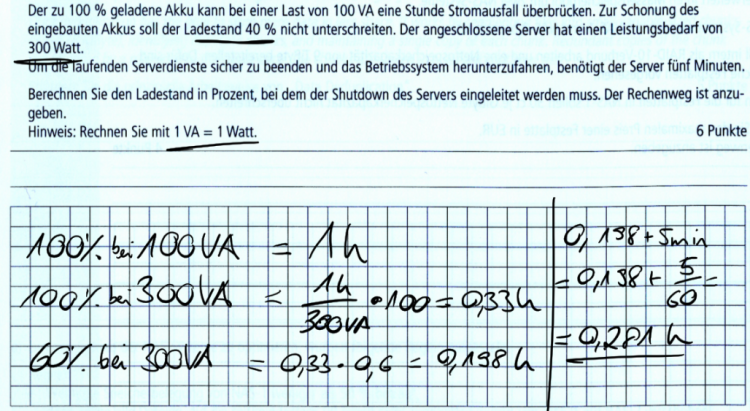 Der zu 100 % geladene Akku kann bei einer Last von 100 VA eine Stunde Stromausfall überbrücken. Zur Schonung des
eingebauten Akkus soll der Ladestand 40 % nicht unterschreiten. Der angeschlossene Server hat einen Leistungsbedarf von
300 Watt.
Um die laufenden Serverdienste sicher zu beenden und das Betriebssystem herunterzufahren, benötigt der Server fünf Minuten.
Berechnen Sie den Ladestand in Prozent, bei dem der Shutdown des Servers eingeleitet werden muss. Der Rechenweg ist anzu-
geben.
Hinweis: Rechnen Sie mit 1 VA = 1 Watt.
6 Punkte
100% bei 100VA = 1h
100% bei 300VA = 1h/300VA • 100 = 0,33h
60% bei 300VA = 0,33 • 0,6 = 0,198 h
0,198 + 5min
= 0,198 + 5/60 =
= 0,281 h